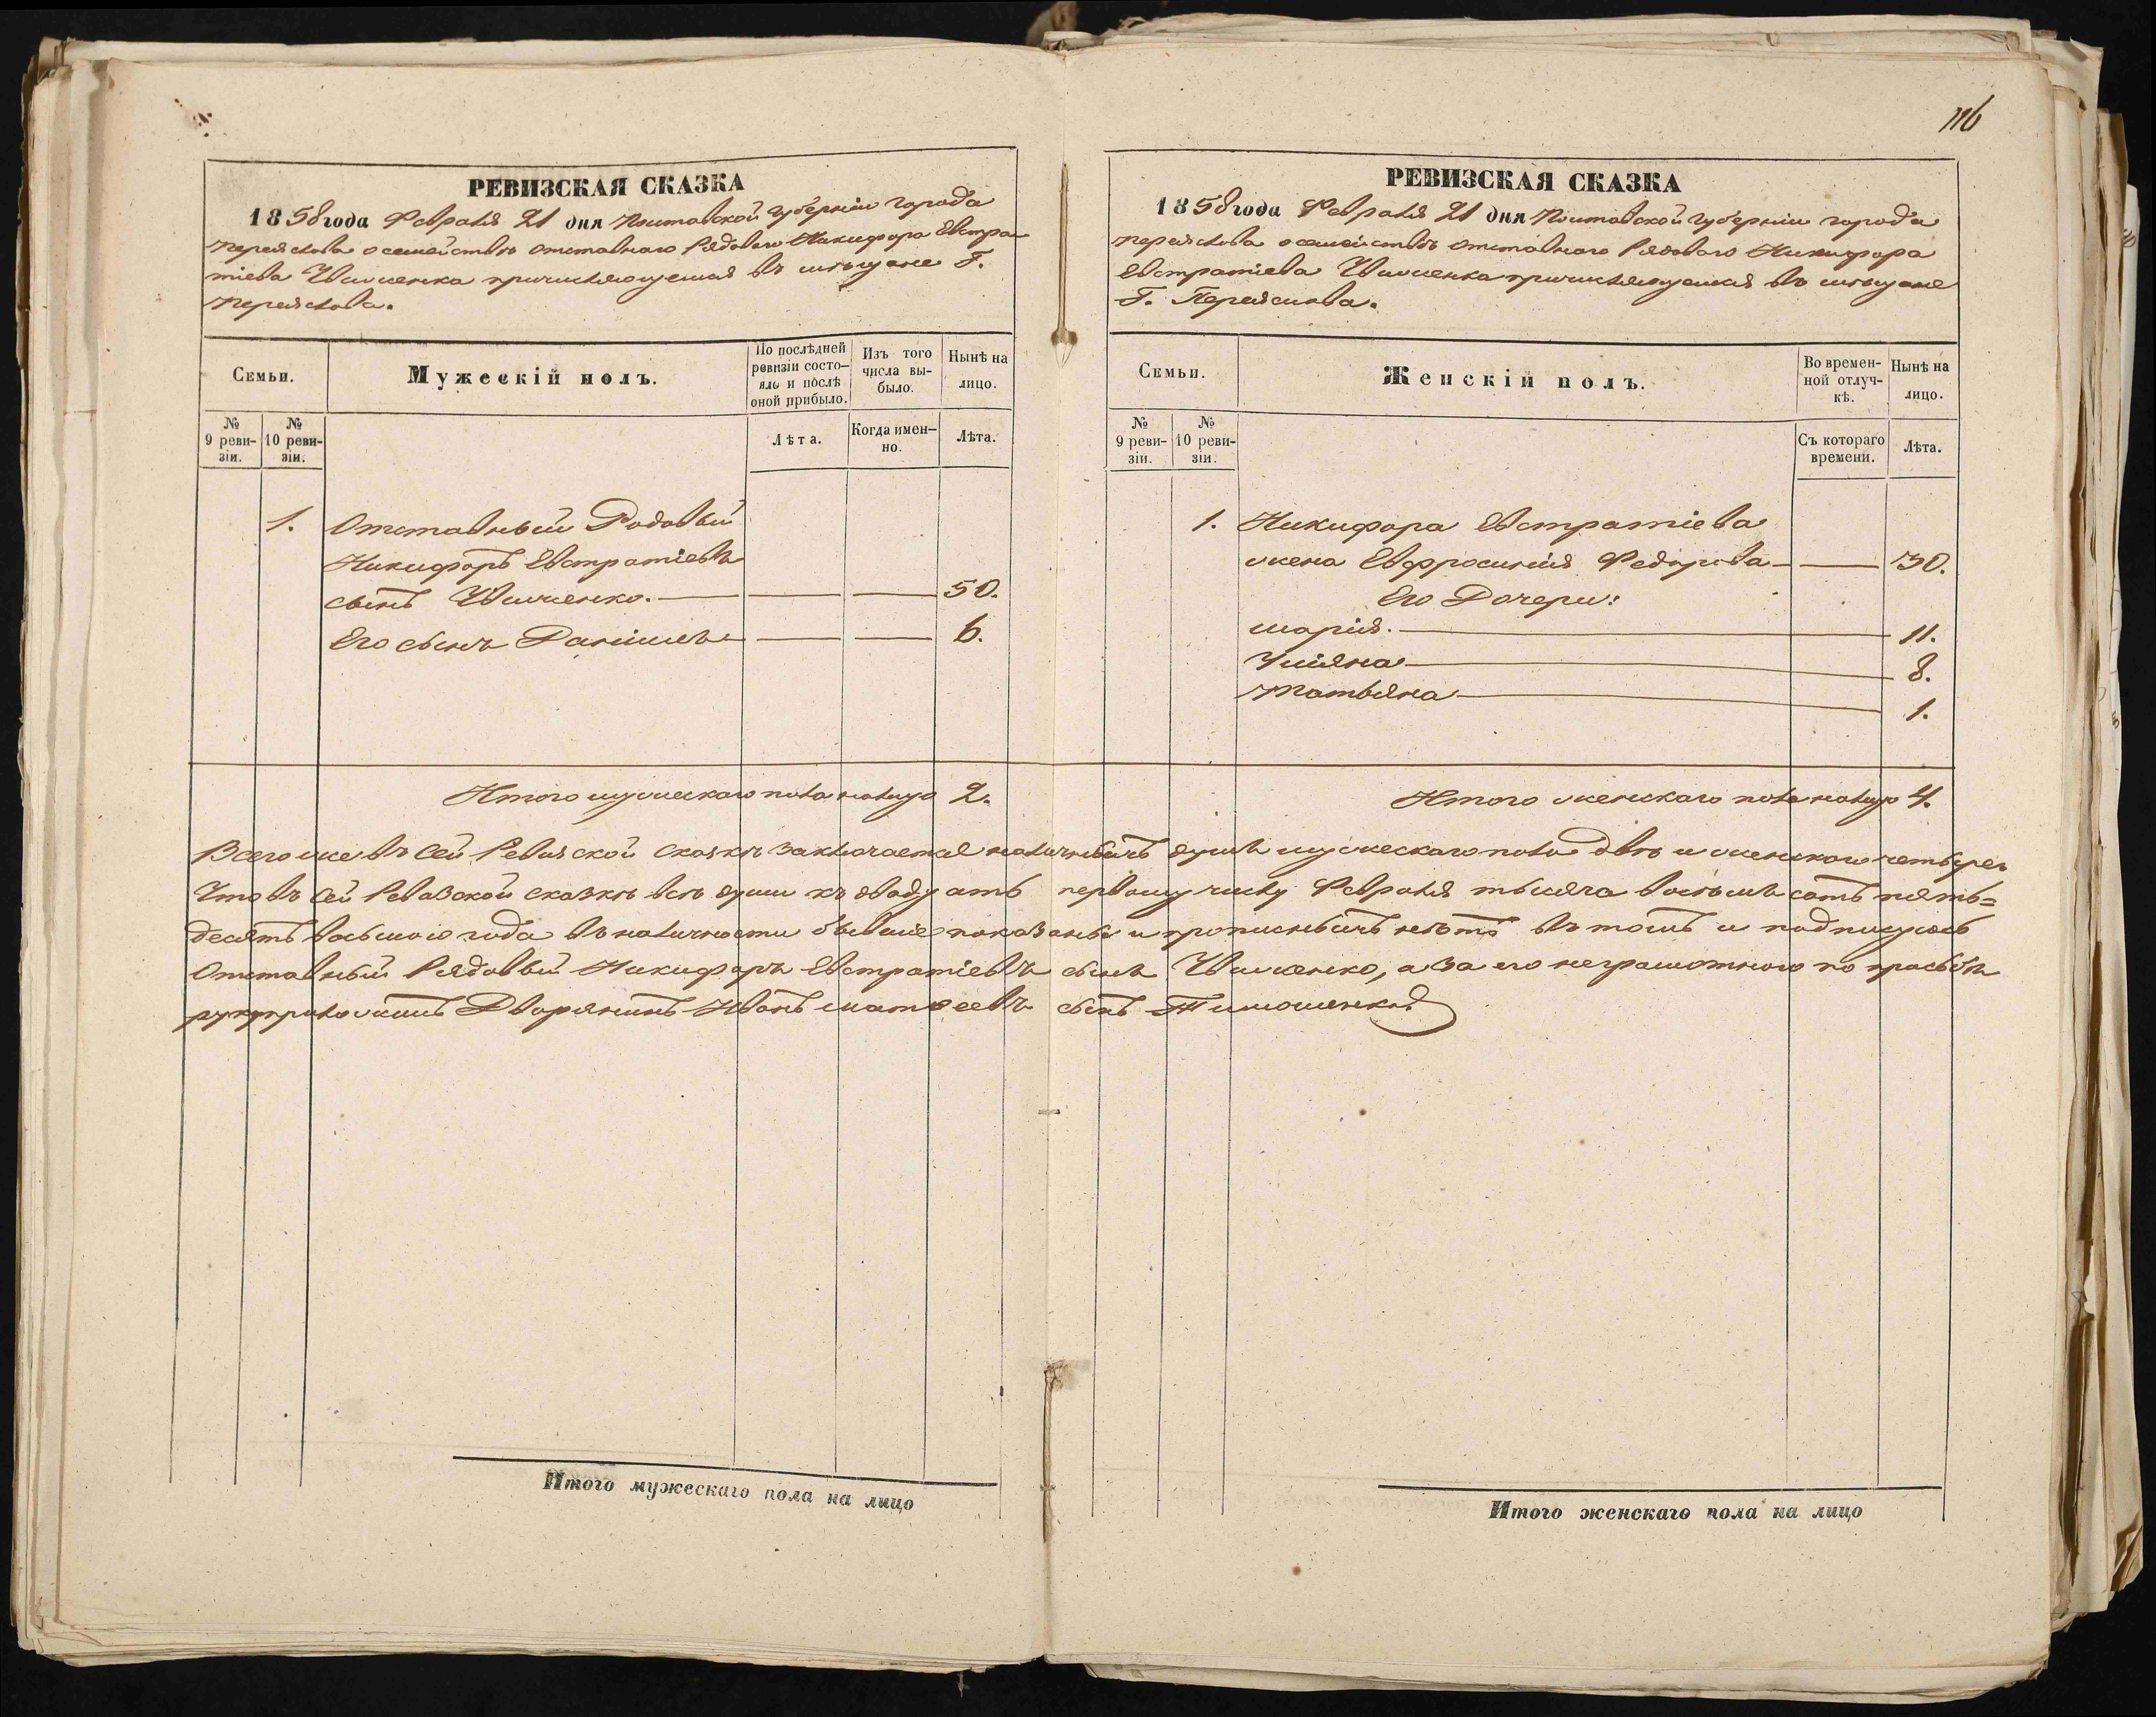 116
РЕВИЗСКАЯ СКАЗКА
1858 года Февраля 21 дня Полтавской Губерніи города
Переяслова о семействѣ отставнаго Рядоваго Никифора Евстра-
тіева причисляющемся въ мѣщане Г.
Переяслова.
Семьи.
Мужескій полъ.
По послѣдней ревизіи состояло и послѣ оной прибыло.
Изъ того числа выбыло.
Нынѣ на лицо.
№ 9 реви-зіи.
№ 10 реви-зіи.
Лѣта.
Когда имен-но.
Лѣта.
1. Отставный Рядовый
Никифоръ Евстратіевъ
сынъ 50.
Его сынъ Даніилъ 6.
Итого мужескаго пола налицо 2.
РЕВИЗСКАЯ СКАЗКА
1858 года Февраля 21 дня Полтавской Губерніи города
Переяслова о семействѣ отставнаго Рядоваго Никифора
Евстратіева причисляющемся въ мѣщане
Г. Переяслова.
Семьи.
Женскій полъ.
Во времен-ной отлуч-кѣ.
Нынѣ на лицо.
№ 9 реви-зіи.
№ 10 реви-зіи.
Съ котораго времени.
Лѣта.
1. Никифора Евстратіева
жена Евфросинія Федорова 30.
Его Дочери:
Марія. 11.
Уліяна 8.
Татьяна 1.
Итого женскаго пола налицо 4.
Всего же въ сей Ревизской сказкѣ заключается наличныхъ душъ мужескаго пола двѣ и женскаго четыре.
Что въ сей Ревизской сказкѣ всѣ души къ двадцать первому числу Февраля тысяча восемь сотъ пять=
десятъ восьмого года въ наличности бывшіе показаны и прописныхъ нѣтъ въ томъ и подписуюсь
Отставный Рядовый Никифоръ Евстратіевъ сынъ а за его неграмотного по прозьбѣ
Дворянинъ Иванъ Матвеевъ сынъ Тимошенко
Итого мужескаго пола на лицо
Итого женскаго пола на лицо